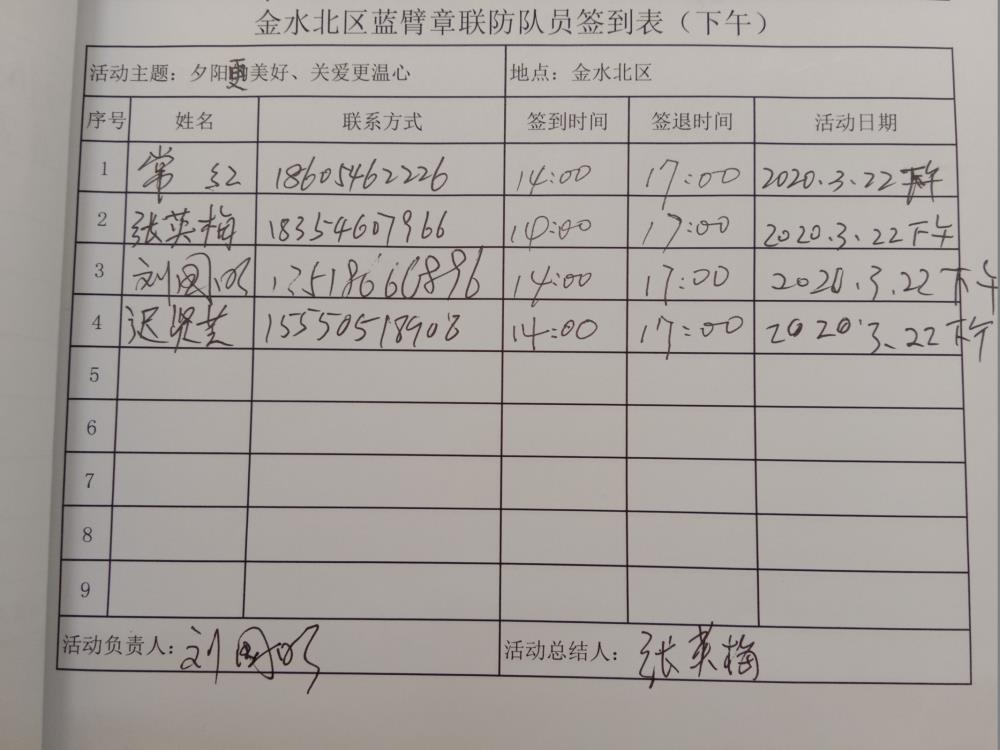 金水北区蓝臂章联防队员签到表（下午）
活动主题：夕阳更美好、关爱更温心 地点：金水北区
序号 姓名 联系方式 签到时间 签退时间 活动日期
1 常红 18605462226 14:00 17:00 2020.3.22下午
2 张英梅 18354607966 14:00 17:00 2020.3.22下午
3 刘国明 13518666896 14:00 17:00 2020.3.22下午
4 迟 15550518908 14:00 17:00 2020.3.22下午
5
6
7
8
9
活动负责人：刘国明 活动总结人：张英梅